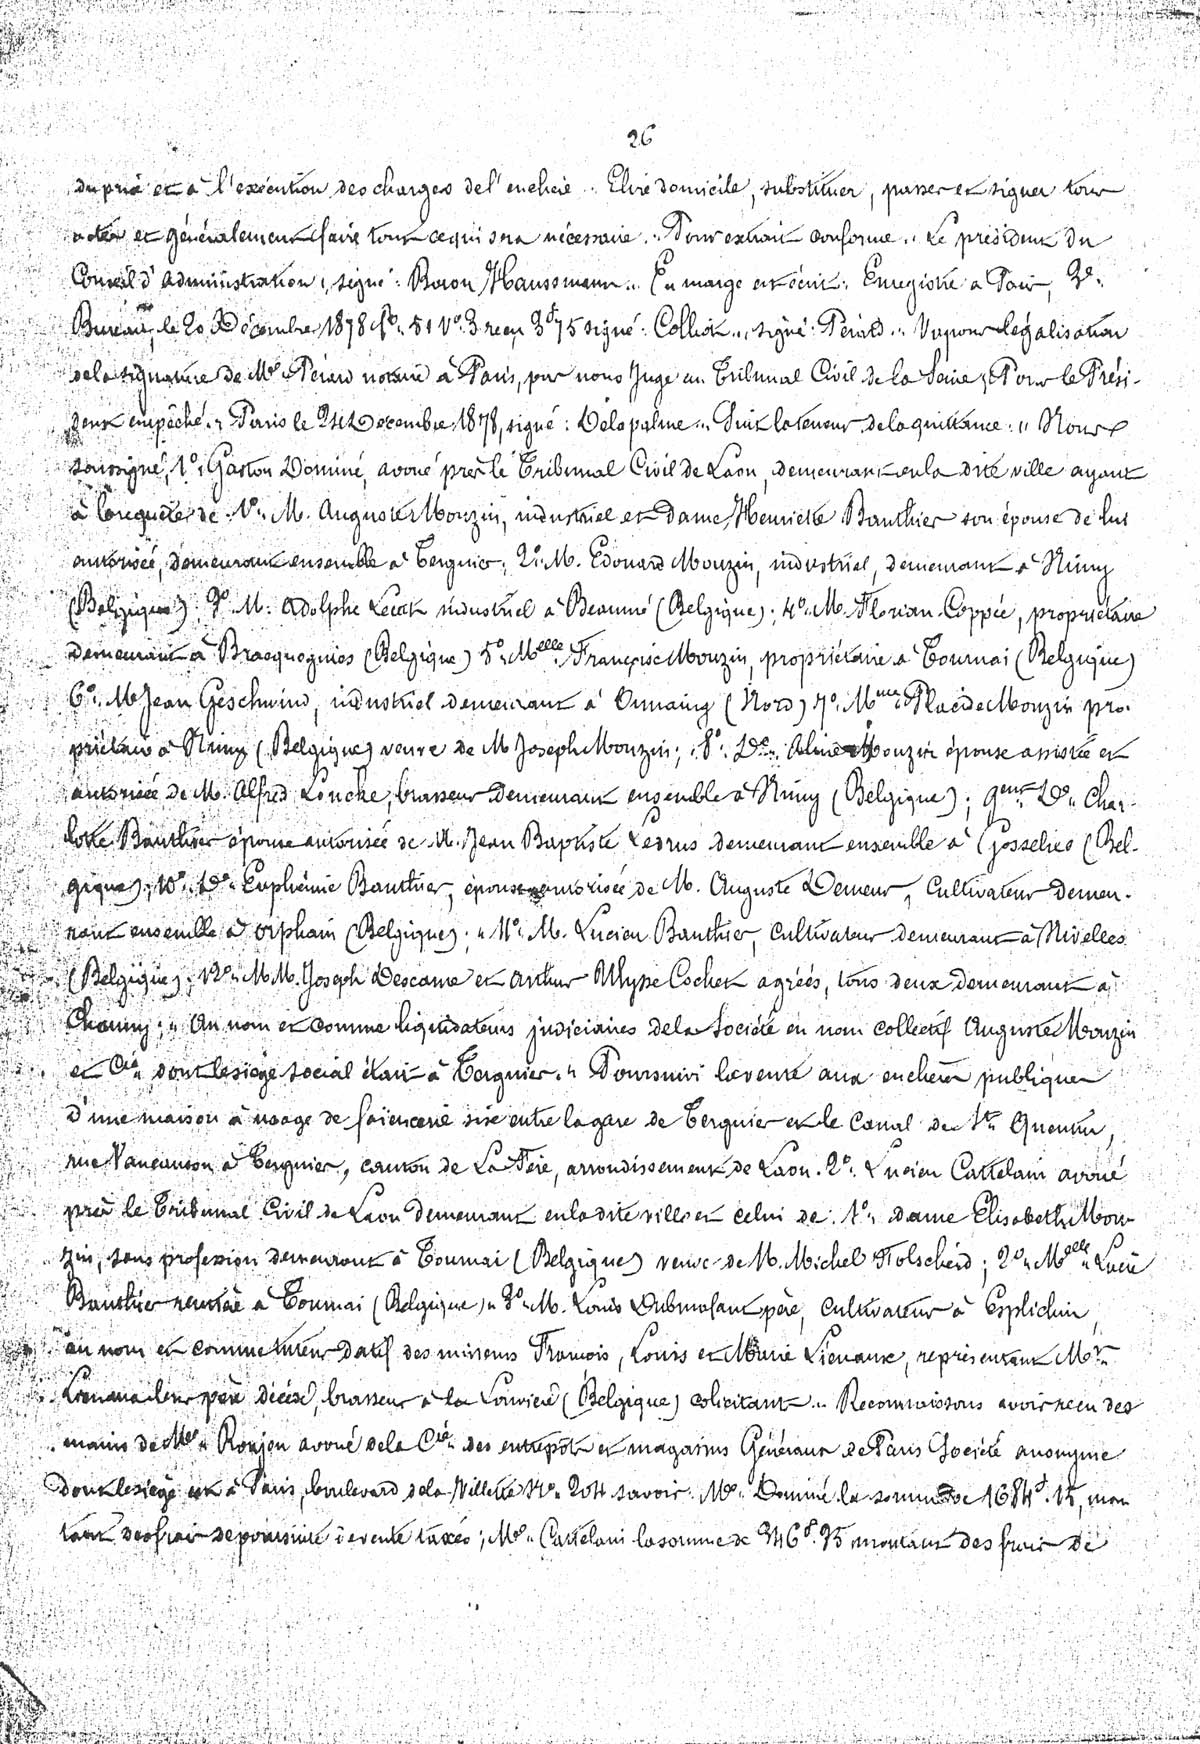 26
du prix et à l'exécution des charges de l'enchère .. Elire domicile, substituer, passer et signer tous
actes et généralement faire tout ce qui sera nécessaire .. Pour extrait conforme .. Le président du
Conseil d'administration, signé : Baron Haussmann .. En marge est écrit : Enregistré à Paris, 3e.
Bureau, le 20 Décembre 1878 fo. 51 Vo. 3 reçu 3f75 signé : .. signé : Pérard .. Vu pour légalisation
de la signature de Me. Pérard notaire à Paris, par nous Juge au Tribunal Civil de la Seine, Pour le Prési-
dent empêché. " Paris le Décembre 1878, signé : Delapalme .. Suit la teneur de la quittance : " Nous
soussigné, 1o. Gaston Dominé, avoué près le Tribunal Civil de Laon, demeurant en la dite ville ayant
à la requête de 1o. M. Auguste Mouzin, industriel et Dame Henriette Bauthier son épouse de lui
autorisée, demeurant ensemble à Tergnier, 2o. M. Edouard Mouzin, industriel, demeurant à Nimy
(Belgique) 3o. M. Adolphe industriel à (Belgique) ; 4o. M. Florian Coppée, propriétaire
demeurant à Bracquegnies (Belgique) 5o. Melle. Françoise Mouzin, propriétaire à Tournai (Belgique)
6o. M Jean Geschwind, industriel demeurant à Onnaing (Nord) 7o. Mme Placide Mouzin pro-
priétaire à Nimy (Belgique) veuve de M Joseph Mouzin ; 8o. De. Aline Mouzin épouse assistée et
autorisée de M. Alfred , brasseur demeurant ensemble à Nimy (Belgique) ; 9ent De. Char-
lotte Bauthier épouse autorisée de M. Jean Baptiste Ledrus demeurant ensemble à Gosselies (Bel-
gique) ; 10o. De. Euphémie Bauthier, épouse autorisée de M. Auguste Demeur, Cultivateur demeu-
rant ensemble à Ophain (Belgique) ; " 11o. M. Lucien Bauthier, Cultivateur demeurant à Nivelles
(Belgique) ; 12o. MM. Joseph Descame et Arthur Ulysse Cochet agréés, tous deux demeurant à
Chauny ; " Au nom et comme liquidateurs judiciaires de la Société en nom collectif Auguste Mouzin
et Cie. dont le siège social était à Tergnier. " Poursuivi la vente aux enchères publiques
d'une maison à usage de faïencerie sise entre la gare de Tergnier et le Canal de St. Quentin,
rue Vaucanson à Tergnier, canton de La Fère, arrondissement de Laon. 2o. Lucien Cattelain avoué
près le Tribunal Civil de Laon demeurant en la dite ville et celui de : 1o. dame Elisabeth Mou-
zin, sans profession demeurant à Tournai (Belgique) veuve de M. Michel ; 2o. Melle. Lucie
Bauthier rentière à Tournai (Belgique) " 3o. M. Louis père, Cultivateur à Esplechin,
au nom et comme tuteur datif des mineurs François, Louis et Marie Liénaux, représentant Mr.
Liénaux leur père décédé, brasseur à la Louvière (Belgique) colicitant .. Reconnaissons avoir reçu des
mains de Me. Roujou avoué de la Cie. des entrepôts et magasins Généraux de Paris Société anonyme
dont le siège est à Paris, boulevard de la Villette No. 204 savoir : Me. Dominé la somme de 1684f.15, mon
tant des frais de poursuite de vente taxés ; Me. Cattelain la somme de 346f.35 montant des frais de